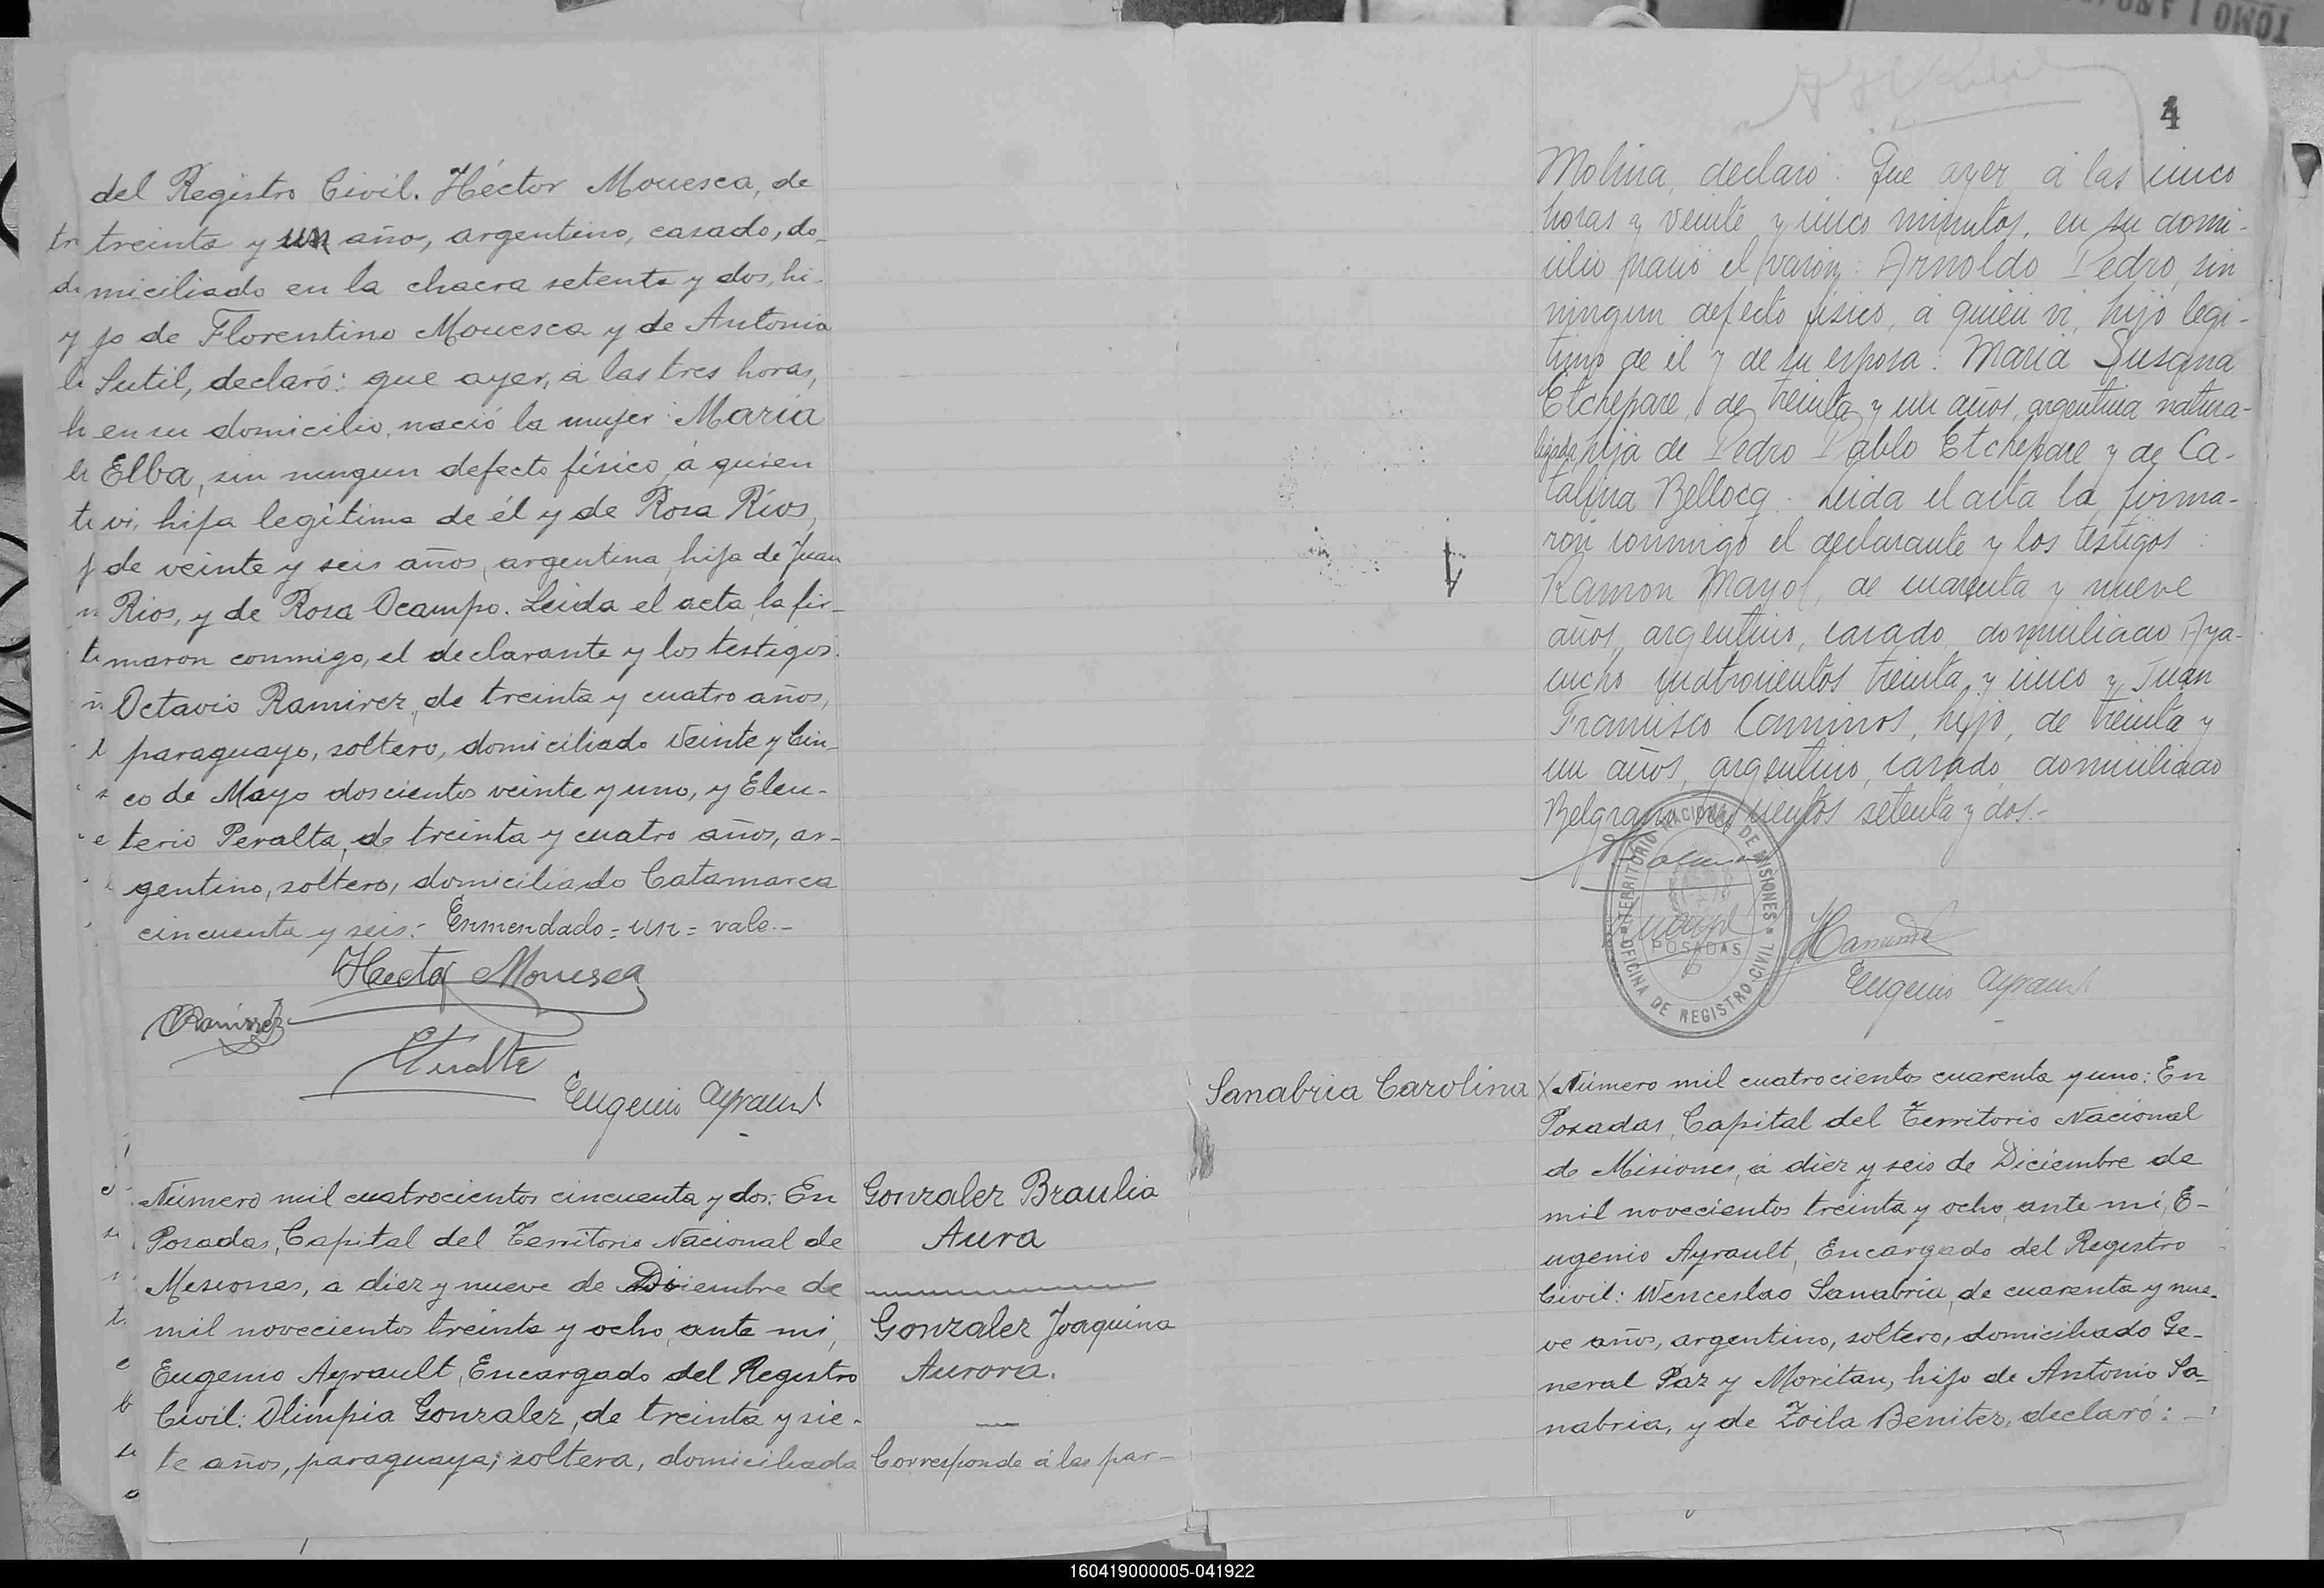 del Registro Civil. Héctor Mouesca, de
treinta y un año, argentino, casado, do-
miciliado en la chacra setenta y dos, hi-
jo de Florentino Mouesca y de Antonia
Sutil, declaró: que ayer, á las tres horas,
en su domicilio, nació la mujer: María
Elba, sin ningun defecto físico á quien
vi, hija legítima de él y de Rosa Ríos,
de veinte y seis años, argentina, hija de Juan
Rios, y de Rosa Ocampo. Leida el acta, la fir-
maron conmigo, el declarante y los testigos:
Octavio Ramirez, de treinta y cuatro años,
paraguayo, soltero, domiciliado Veinte y Cin-
co de Mayo doscientos veinte y uno, y Eleu-
terio Peralta, de treinta y cuatro años, ar-
gentino, soltero, domiciliado Catamarca
cincuenta y seis.- Enmendado = un = vale.-
Hector Mouesca
ORamirez
EPeralta
Eugenio Ayrault
Número mil cuatrocientos cincuenta y dos: En
Posadas, Capital del Territorio Nacional de
Misiones, a diez y nueve de Diciembre de
mil novecientos treinta y ocho, ante mi,
Eugenio Ayrault, Encargado del Registro
Civil: Olimpia Gonzalez, de treinta y sie-
te años, paraguaya, soltera, domiciliada
Gonzalez Braulia
Aura
Gonzalez Joaquina
Aurora.
Corresponde á las par-
4
Molina, declaró: Que ayer á las cinco
horas y veinte y cinco minutos, en su domi-
cilio nació el varón: Arnoldo Pedro, sin
ningun defecto físico, á quien vi, hijo legi-
timo de él y de su esposa: Maria Susana
Etchepare, de treinta y un años, argentina natura-
lizada, hija de Pedro Pablo Etchepare y de Ca-
talina Bellocq. Leida el acta la firma-
ron conmigo el declarante y los testigos:
Ramon Mayol, de cuarenta y nueve
años, argentino, casado, domiciliado Aya-
cucho cuatrocientos treinta y cinco y Juan
Francisco Caminos, hijo, de treinta y
un años, argentino, casado, domiciliado
Belgrano trescientos setenta y dos.-
TERRITORIO NACIONAL DE MISIONES
POSADAS
OFICINA DE REGISTRO CIVIL
Eugenio Ayrault
Sanabria Carolina
Número mil cuatrocientos cuarenta y uno: En
Posadas, Capital del Territorio Nacional
de Misiones, á diez y seis de Diciembre de
mil novecientos treinta y ocho, ante mi, E-
ugenio Ayrault, Encargado del Registro
Civil: Wenceslao Sanabria, de cuarenta y nue-
ve años, argentino, soltero, domiciliado Ge-
neral Paz y Moritan, hijo de Antonio Sa-
nabria, y de Zoila Benitez, declaró: -
160419000005-041922